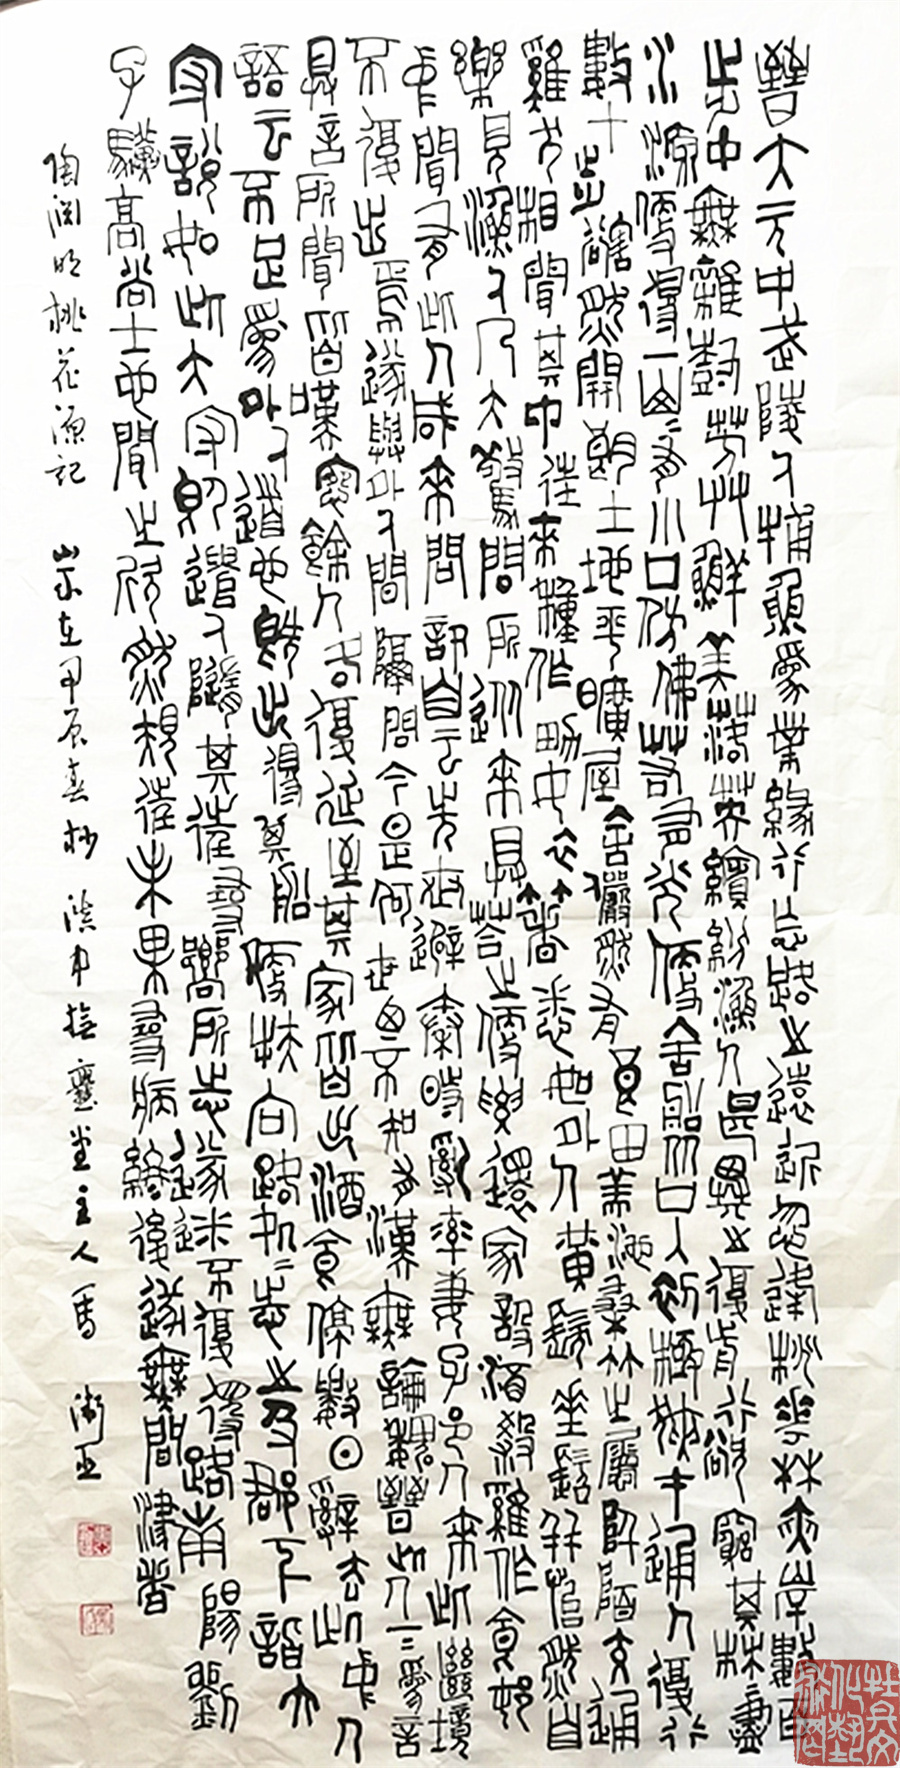 晉太元中武陵人捕魚為業緣行忘路之遠近忽逢桃花林夾岸數百
步中無雜樹芳草鮮美落英繽紛漁人甚異之復前行欲窮其林盡
水源便得一山〻有小口仿佛若有光便舍船從口入初極狹才通人復行
數十步豁然開朗土地平曠屋舍儼然有良田美池桑竹之屬阡陌交通
雞犬相聞其中往來種作男女衣著悉如外人黃髮垂髫并怡然自
樂見漁人乃大驚問所從來具答之便要還家設酒殺雞作食村
中聞有此人咸來問訊自云先世避秦時亂率妻子邑人來此絕境
不復出焉遂與外人間隔問今是何世乃不知有漢無論魏晉此人一一為言
具言所聞皆嘆惋餘人各復延至其家皆出酒食停數日辭去此中人
語云不足為外人道也既出得其船便扶向路處〻誌之及郡下詣太
守說如此太守即遣人隨其往尋向所誌遂迷不復得路南陽劉
子驥高尚士也聞之欣然規往未果尋病終後遂無問津者
陶淵明桃花源記 歲在甲辰春抄 滇中 堂主人馬